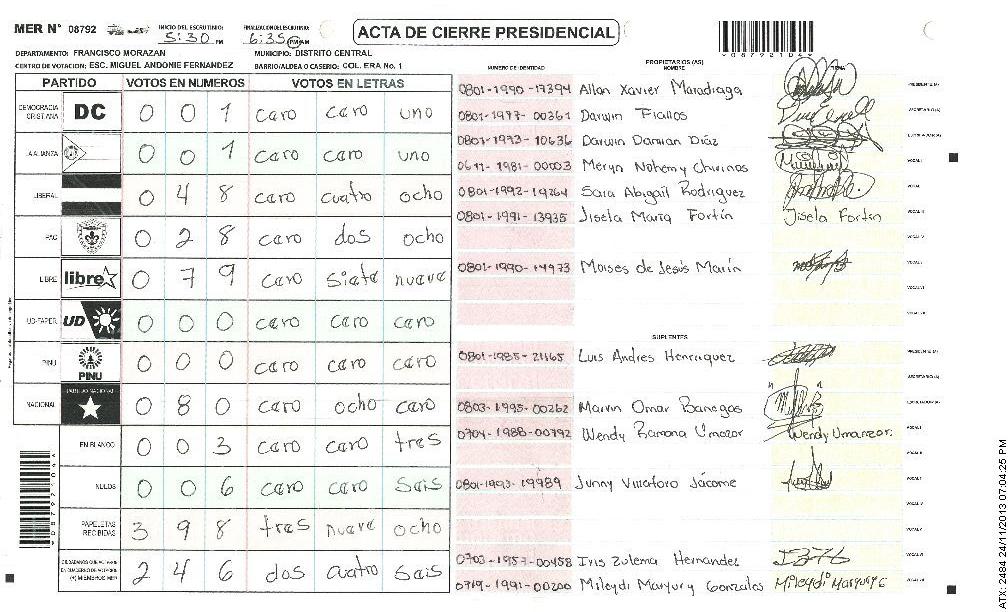 MER N° 08792 INICIO DEL ESCRUTINIO: 5:30 PM FINALIZACION DEL ESCRUTINIO: 6:35 PM AM
ACTA DE CIERRE PRESIDENCIAL
DEPARTAMENTO: FRANCISCO MORAZAN MUNICIPIO: DISTRITO CENTRAL
CENTRO DE VOTACION: ESC. MIGUEL ANDONIE FERNANDEZ BARRIO/ALDEA O CASERIO: COL. ERA No. 1
PARTIDO VOTOS EN NUMEROS VOTOS EN LETRAS
DEMOCRACIA CRISTIANA DC 0 0 1 caro caro uno
LA ALIANZA 0 0 1 caro caro uno
LIBERAL 0 4 8 caro cuatro ocho
PAC 0 2 8 caro dos ocho
LIBRE libre 0 7 9 caro siete nueve
UD-FAPER UD 0 0 0 caro caro caro
PINU PINU 0 0 0 caro caro caro
NACIONAL PARTIDO NACIONAL 0 8 0 caro ocho caro
EN BLANCO 0 0 3 caro caro tres
NULOS 0 0 6 caro caro sais
PAPELETAS RECIBIDAS 3 9 8 tres nueve ocho
2 4 6 dos cuatro sais
NUMERO DE IDENTIDAD PROPIETARIOS (AS) NOMBRE FIRMA
0801-1990-17394 Allan Xavier Maradiaga PRESIDENTE (A)
0801-1977-00361 Darwin Fiallos SECRETARIO (A)
0801-1993-10636 Darwin Damian Díaz ESCRUTADOR (A)
0611-1981-00003 Meryn Nohemy Chirinos VOCAL I
0801-1992-19264 Sara Abigail Rodriguez VOCAL II
0801-1991-13935 Jisela María Fortín Jisela Fortin VOCAL III
0801-1990-14973 Moises de Jesús Marín
SUPLENTES
0801-1985-21165 Luis Andres Henriquez PRESIDENTE (A)
SECRETARIO (A)
0803-1995-00262 Marvin Omar Banegas ESCRUTADOR (A)
0704-1988-00792 Wendy Ramona Umazor Wendy Umanzor.
0801-1993-19989 Junny Villatoro Jácome
0703-1957-00458 Iris Zulema Hernandez
0719-1991-00200 Mileydi Maryury Gonzales
ATX-2484 24/11/2013 07:04:25 PM